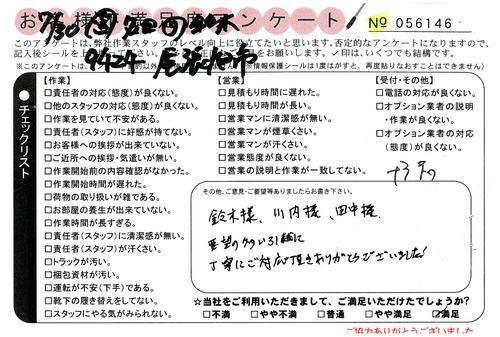 お　様満足度アンケート！
№ 056146
7/30
9424　尾張旭市
このアンケートは、弊社作業スタッフのレベル向上に役立てたいと思います。否定的なアンケートになりますので、
記入後シール　いつでも構です。
※このアンケートは　※情報保護シールは1度がすと、再度貼りなおすことはできません)
● チェックリスト
【作業】
□責任者の対応(態度)が良くない。
□他のスタッフの対応(態度)が良くない。
□作業を見ていて不安がある。
□責任者(スタッフ)に好感が持てない。
□お客様への挨拶が出来ていない。
□ご近所への挨拶・気遣いが無い。
□作業開始前の内容確認がなかった。
□作業開始時間が遅れた。
□荷物の取り扱いが雑である。
□お部屋の養生が出来ていない。
□作業時間が長すぎる。
□責任者(スタッフ)に清潔感が無い。
□責任者(スタッフ)が汗くさい。
□トラックが汚い。
□梱包資材が汚い。
□運転が不安(下手)である。
□靴下の履き替えをしてない。
□スタッフにやる気がみられない。
【営業】
□見積もり時間に遅れた。
□見積もり時間が長い。
□営業マンに清潔感が無い。
□営業マンが煙草くさい。
□営業マンが汗くさい。
□営業態度が良くない。
□営業の説明と作業が一致してない。
【受付・その他】
□電話の対応が良くない。
□オプション業者の説明
・作業が良くない。
□オプション業者の対応
(態度)が良くない。
その他、ご意見・ご要望等ありましたらお書き下さい。
鈴木様、川内様、田中様
要望の多い引越に
丁寧にご対応頂きありがとうございました!
☆当社をご利用いただきまして、ご満足いただけたでしょうか?
□不満　□やや不満　□普通　□やや満足　☑満足
ご協力ありがとうございました